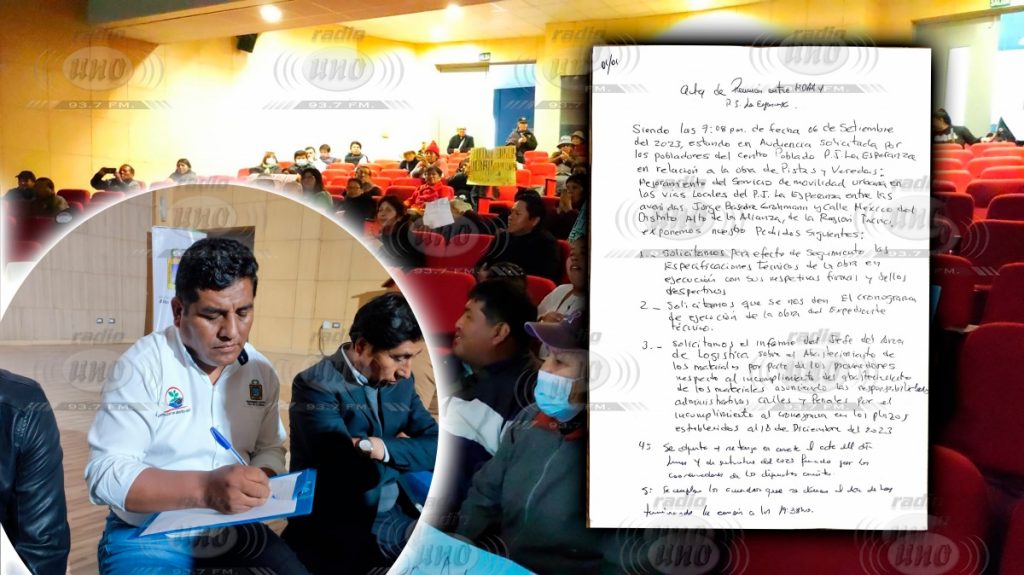 radio
uno
93.7 FM.
01/01
Acta de Reunión entre MDAA y
P.J. La Esperanza.
Siendo las 7:08 pm. de fecha 06 de Setiembre
del 2023, estando en Audiencia solicitada por
los pobladores del centro Poblado P.J. La Esperanza
en relación a la obra de Pistas y Veredas:
Mejoramiento del Servicio de movilidad urbana en
las vias Locales del P.J. La Esperanza entre las
avenidas Jorge Basadre Grohmann y Calle México del
Distrito Alto de la Alianza, de la Región Tacna,
exponemos nuestro Pedidos Siguientes:
1.- Solicitamos para efecto de Seguimiento las
Especificaciones Técnicas de la obra en
ejecución con sus respetivas firmas y sellos
respectivos
2.- Solicitamos que se nos den El cronograma
de ejecución de la obra del Expediente
técnico.
3.- Solicitamos el informe del Jefe del área
de Logística, sobre el Abastecimiento de
los materiales por parte de los proveedores
respecto al incumplimiento del abastecimiento
de los materiales asumiendo las responsabilidades
administrativas Civiles y Penales por el
incumplimiento al cronograma en los plazos
establecidos al 18 de Diciembre del 2023
4: Se adjunta el acta del día
Lunes 4 de setiembre del 2023 firmado por los
coordinadores de los
5: Se cumplan los acuerdos que se dieron el día de hoy
terminando la reunión a los 19:38 hrs.